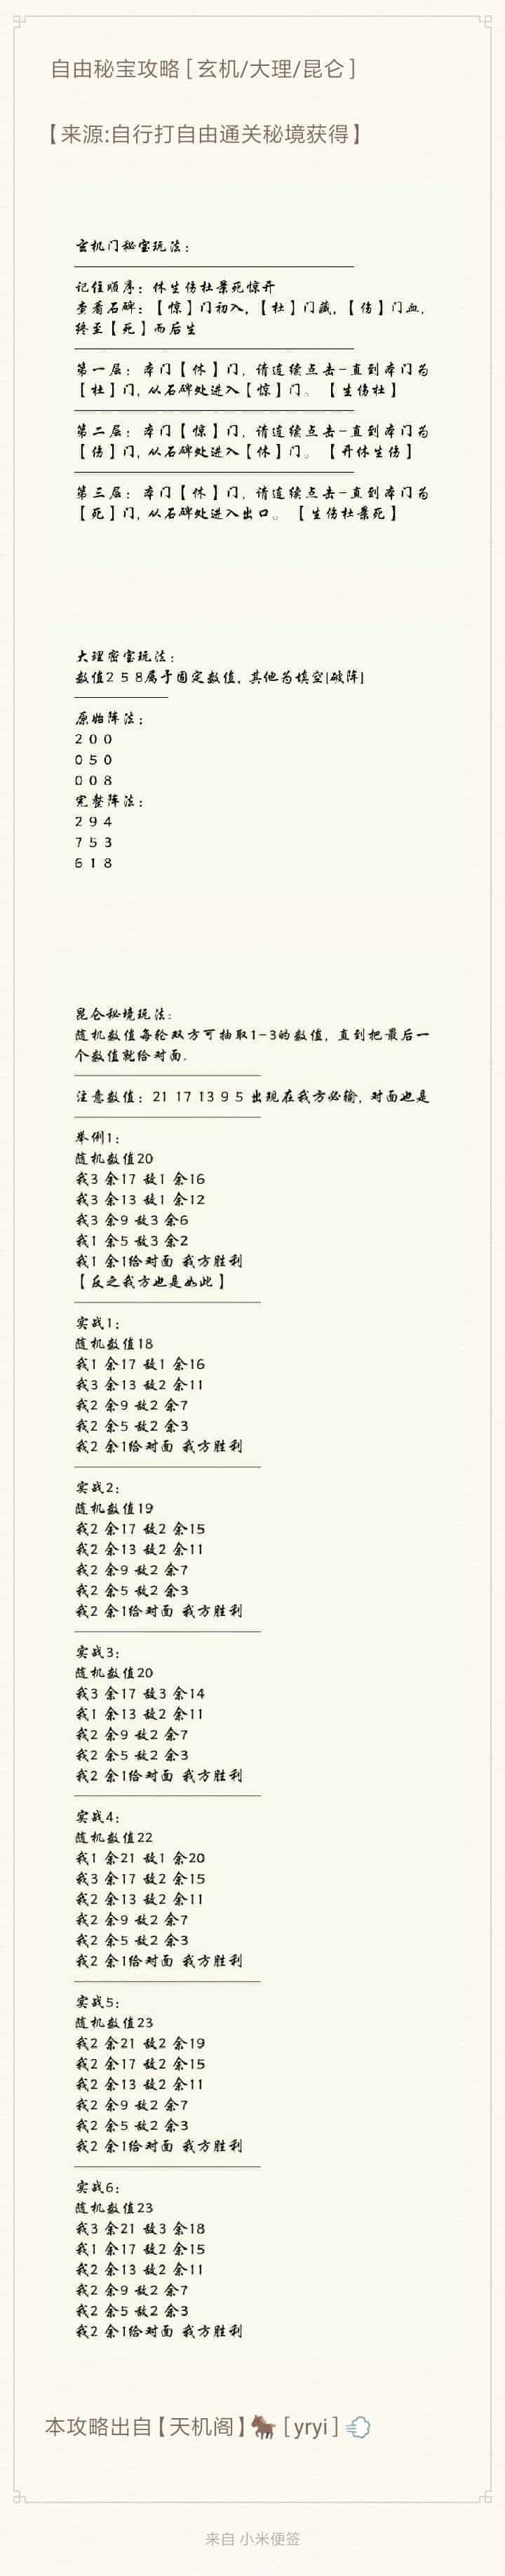 自由秘宝攻略[玄机/大理/昆仑]
【来源:自行打自由通关秘境获得】
玄机门秘宝玩法：
记住顺序：休生伤杜景死惊开
查看石碑：【惊】门初入，【杜】门藏，【伤】门血，
终至【死】而后生
第一层：本门【休】门，请连续点击-直到本门为
【杜】门，从石碑处进入【惊】门。【生伤杜】
第二层：本门【惊】门，请连续点击-直到本门为
【伤】门，从石碑处进入【休】门。【开休生伤】
第三层：本门【休】门，请连续点击-直到本门为
【死】门，从石碑处进入出口。【生伤杜景死】
大理密宝玩法：
数值2 5 8属于固定数值，其他为填空|破阵|
原始阵法：
2 0 0
0 5 0
0 0 8
完整阵法：
2 9 4
7 5 3
6 1 8
昆仑秘境玩法：
随机数值每轮双方可抽取1-3的数值，直到把最后一
个数值就给对面.
注意数值：21 17 13 9 5 出现在我方必输，对面也是
举例1：
随机数值20
我3 余17 敌1 余16
我3 余13 敌1 余12
我3 余9 敌3 余6
我1 余5 敌3 余2
我1 余1给对面 我方胜利
【反之我方也是如此】
实战1：
随机数值18
我1 余17 敌1 余16
我3 余13 敌2 余11
我2 余9 敌2 余7
我2 余5 敌2 余3
我2 余1给对面 我方胜利
实战2：
随机数值19
我2 余17 敌2 余15
我2 余13 敌2 余11
我2 余9 敌2 余7
我2 余5 敌2 余3
我2 余1给对面 我方胜利
实战3：
随机数值20
我3 余17 敌3 余14
我1 余13 敌2 余11
我2 余9 敌2 余7
我2 余5 敌2 余3
我2 余1给对面 我方胜利
实战4：
随机数值22
我1 余21 敌1 余20
我3 余17 敌2 余15
我2 余13 敌2 余11
我2 余9 敌2 余7
我2 余5 敌2 余3
我2 余1给对面 我方胜利
实战5：
随机数值23
我2 余21 敌2 余19
我2 余17 敌2 余15
我2 余13 敌2 余11
我2 余9 敌2 余7
我2 余5 敌2 余3
我2 余1给对面 我方胜利
实战6：
随机数值23
我3 余21 敌3 余18
我1 余17 敌2 余15
我2 余13 敌2 余11
我2 余9 敌2 余7
我2 余5 敌2 余3
我2 余1给对面 我方胜利
本攻略出自【天机阁】🐎[yryi]💨
来自 小米便签